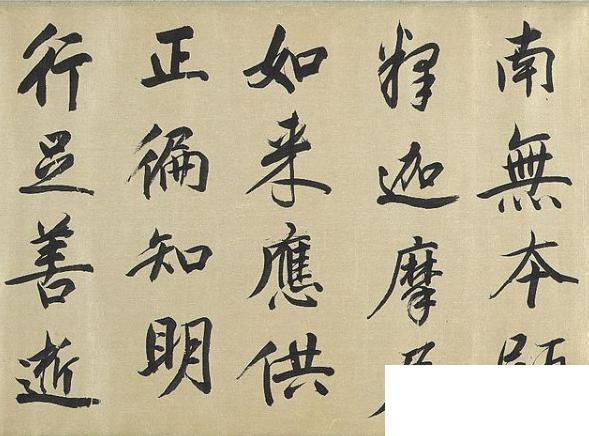 南無本
釋迦摩
如来應供
正徧知明
行足善逝